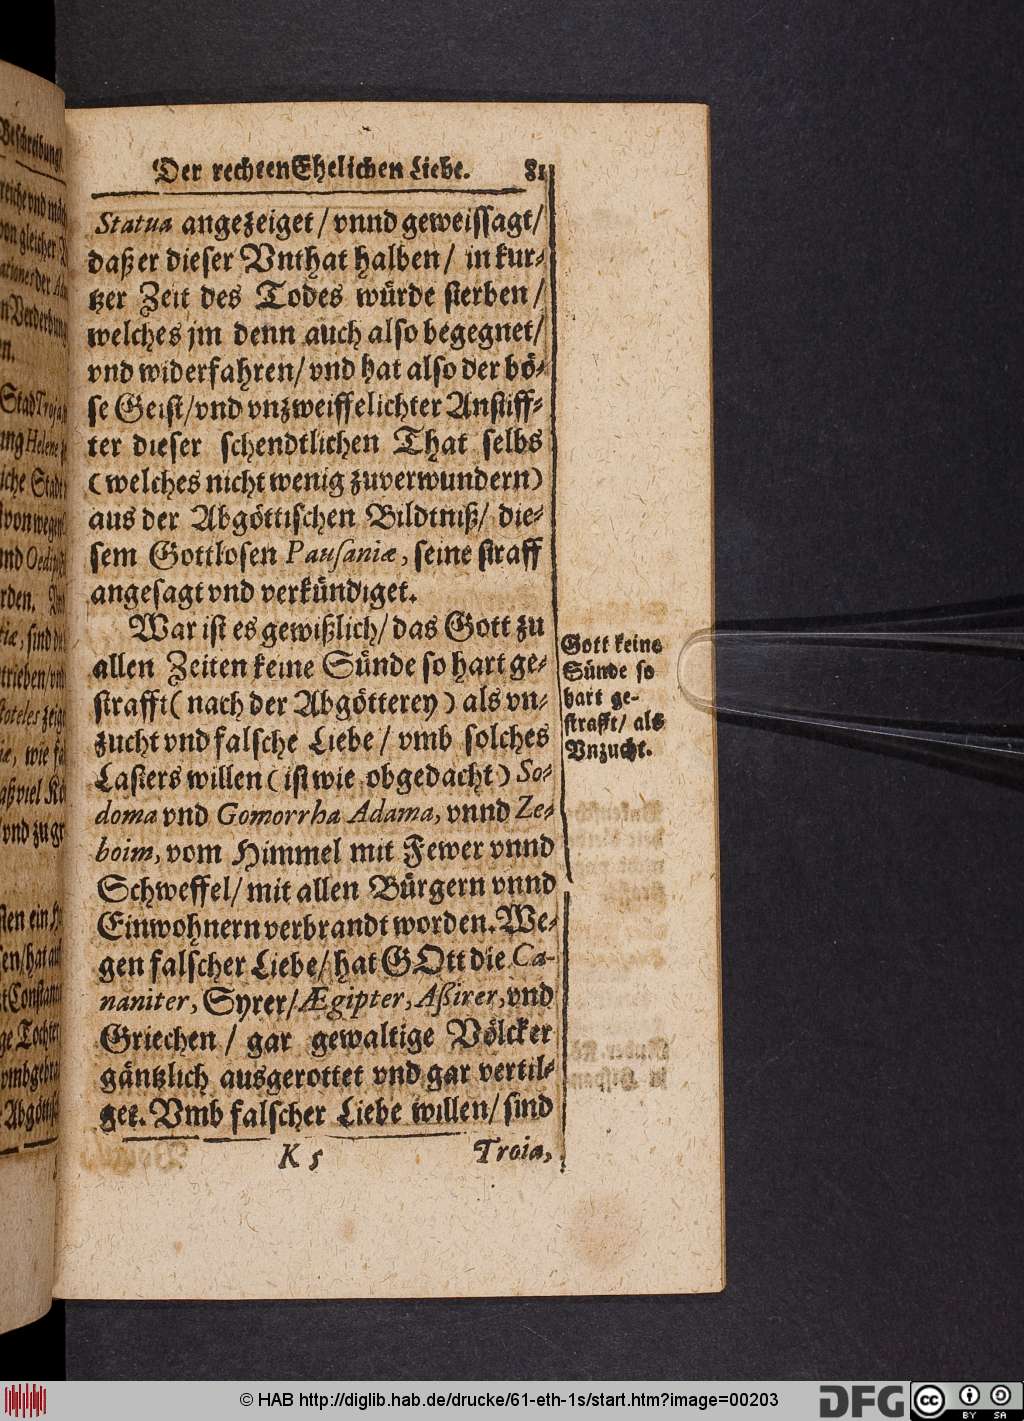 Der rechten Ehelichen Liebe. 81
Statua angezeiget / vnnd geweissagt/
daß er dieser Vnthat halben / in kur-
tzer Zeit des Todes würde sterben /
welches jm denn auch also begegnet/
vnd widerfahren/ vnd hat also der bö-
se Geist/vnd vnzweiffelichter Anstiff-
ter dieser schendtlichen That selbs
(welches nicht wenig zuverwundern)
aus der Abgöttischen Bildtniß/ die-
sem Gottlosen Pausaniæ, seine straff
angesagt vnd verkündiget.
War ist es gewißlich/ das Gott zu
allen Zeiten keine Sünde so hart ge-
strafft ( nach der Abgötterey ) als vn-
zucht vnd falsche Liebe / vmb solches
Lasters willen ( ist wie obgedacht ) So-
doma vnd Gomorrha Adama, vnnd Ze-
boim, vom Himmel mit Fewer vnnd
Schweffel/ mit allen Bürgern vnnd
Einwohnern verbrandt worden. We-
gen falscher Liebe/ hat GOtt die Ca-
naniter, Syrer/ Ægipter, Aßirer, vnd
Griechen / gar gewaltige Völcker
gäntzlich ausgerottet vnd gar vertil-
get. Vmb falscher Liebe willen/ sind
K 5 Troia,
Gott keine
Sünde so
hart ge-
strafft/ als
Vnzucht.
Beschreibung/
© HAB http://diglib.hab.de/drucke/61-eth-1s/start.htm?image=00203
DFG
cc
BY SA